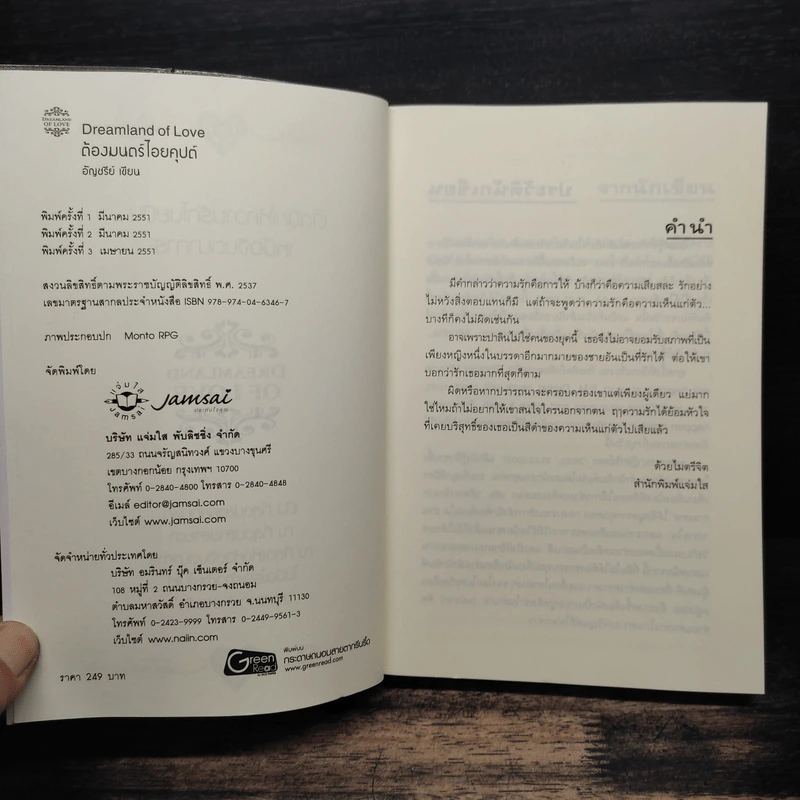 DREAMLAND
OF LOVE
Dreamland of Love
ต้องมนตร์ไอยคุปต์
อัญชรีย์ เขียน
พิมพ์ครั้งที่ 1 มีนาคม 2551
พิมพ์ครั้งที่ 2 มีนาคม 2551
พิมพ์ครั้งที่ 3 เมษายน 2551
สงวนลิขสิทธิ์ตามพระราชบัญญัติลิขสิทธิ์ พ.ศ. 2537
เลขมาตรฐานสากลประจำหนังสือ ISBN 978-974-04-6346-7
ภาพประกอบปก Monto RPG
จัดพิมพ์โดย
แจ่มใส
Jamsai
Jamsai
บริษัท แจ่มใส พับลิชชิ่ง จำกัด
285/33 ถนนจรัญสนิทวงศ์ แขวงบางขุนศรี
เขตบางกอกน้อย กรุงเทพฯ 10700
โทรศัพท์ 0-2840-4800 โทรสาร 0-2840-4848
อีเมล์ editor@jamsai.com
เว็บไซต์ www.jamsai.com
จัดจำหน่ายทั่วประเทศโดย
บริษัท อมรินทร์ บุ๊ค เซ็นเตอร์ จำกัด
108 หมู่ที่ 2 ถนนบางกรวย-จงถนอม
ตำบลมหาสวัสดิ์ อำเภอบางกรวย จ.นนทบุรี 11130
โทรศัพท์ 0-2423-9999 โทรสาร 0-2449-9561-3
เว็บไซต์ www.naiin.com
Green Read
พิมพ์บน
กระดาษถนอมสายตากรีนรี้ด
www.greenread.com
ราคา 249 บาท
คำนำ
มีคำกล่าวว่าความรักคือการให้ บ้างก็ว่าคือความเสียสละ รักอย่าง
ไม่หวังสิ่งตอบแทนก็มี แต่ถ้าจะพูดว่าความรักคือความเห็นแก่ตัว...
บางทีก็คงไม่ผิดเช่นกัน
อาจเพราะปาลินไม่ใช่คนของยุคนี้ เธอจึงไม่อาจยอมรับสภาพที่เป็น
เพียงหญิงหนึ่งในบรรดาอีกมากมายของชายอันเป็นที่รักได้ ต่อให้เขา
บอกว่ารักเธอมากที่สุดก็ตาม
ผิดหรือหากปรารถนาจะครอบครองเขาแต่เพียงผู้เดียว แย่มาก
ใช่ไหมถ้าไม่อยากให้เขาสนใจใครนอกจากตน ฤๅความรักได้ย้อมหัวใจ
ที่เคยบริสุทธิ์ของเธอเป็นสีดำของความเห็นแก่ตัวไปเสียแล้ว
ด้วยไมตรีจิต
สำนักพิมพ์แจ่มใส